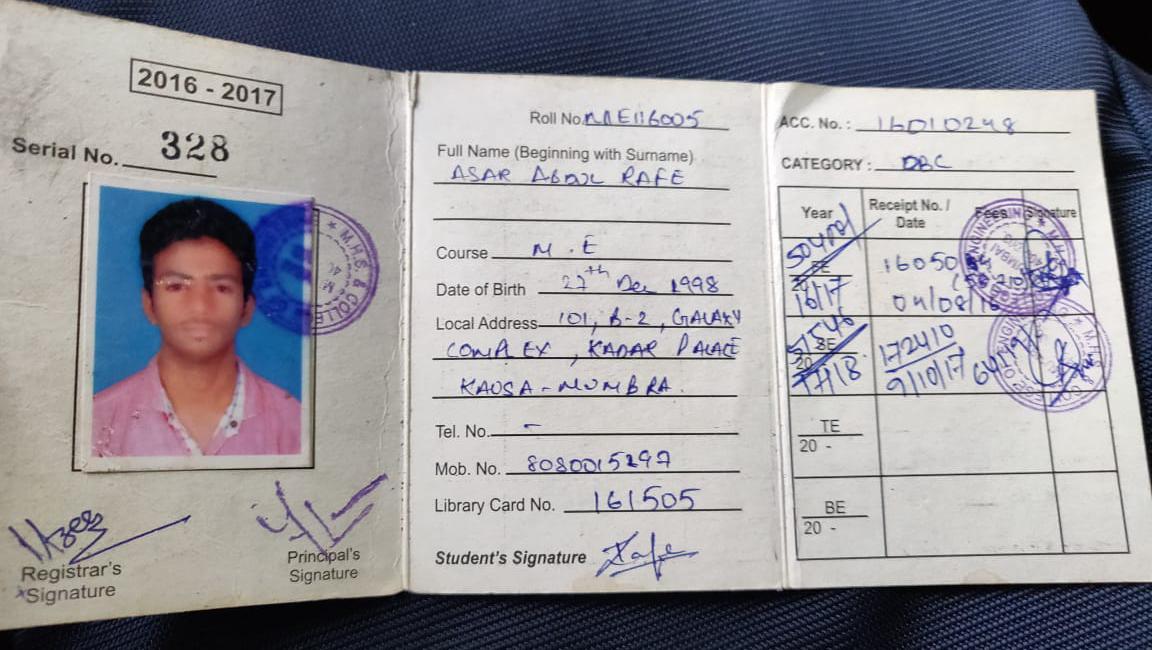 2016 - 2017
Serial No. 328
M.H.S. & COLLE
Registrar's
Signature
Principal's
Signature
Roll No. MME116005
Full Name (Beginning with Surname)
ASAR ABDUL RAFE
Course M.E
Date of Birth 27th Dec 1998
Local Address 101, B-2, GALAXY
COMPLEX, KADAR PALACE
KAUSA-MUMBRA.
Tel. No. -
Mob. No. 8080015297
Library Card No. 161505
Student's Signature Rafe
ACC. No. : 16010248
CATEGORY : OBC
Year Receipt No. / Date Fees Signature
50400/
16/17
04/08/16
SE
20
17/18 172410
9/10/17
TE
20 -
BE
20 -